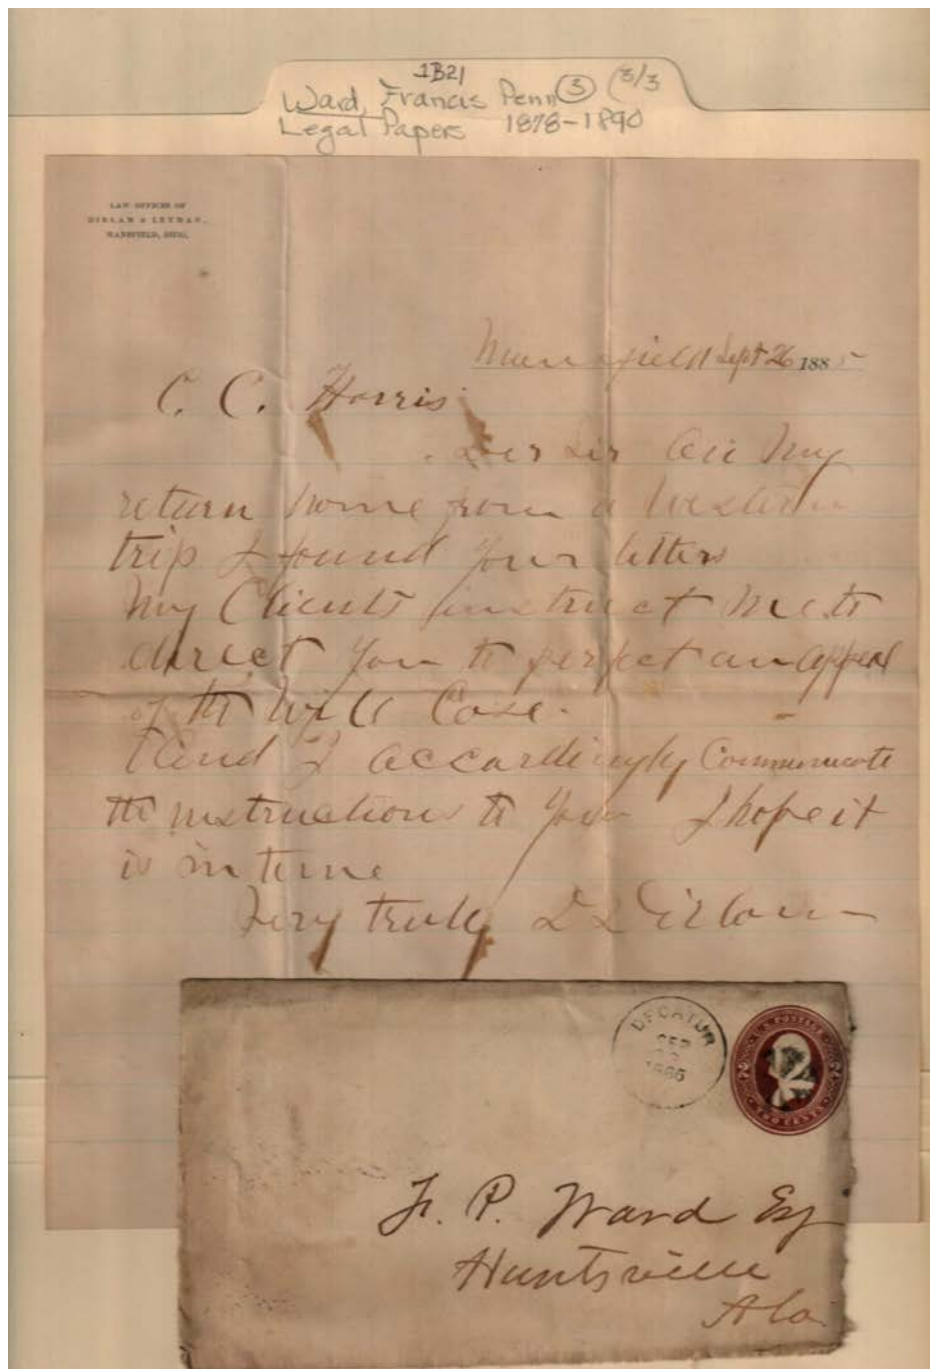 1B21
Ward, Francis Penn ③ (3/3
Legal Papers 1878-1890
LAW OFFICES OF
DIRLAM & LEYMAN,
MANSFIELD, OHIO.
Mansfield Sept 26 1885
C. C. Harris
Der Sir On My
return home from a Western
trip I found your letters
My Clients instruct me to
direct you to perfect an appeal
of the Will Case.
And I accordingly Communicate
the instructions to you I hope it
is in time
Very truly D Dirlam
DECATUR
SEP
U.S. POSTAGE
2 2
TWO CENTS
F. P. Ward Esq
Huntsville
Ala